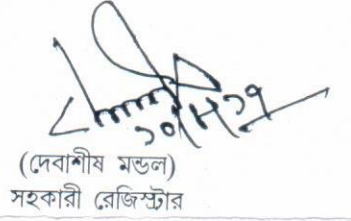 (দেবাশীষ মন্ডল)
সহকারী রেজিস্ট্রার